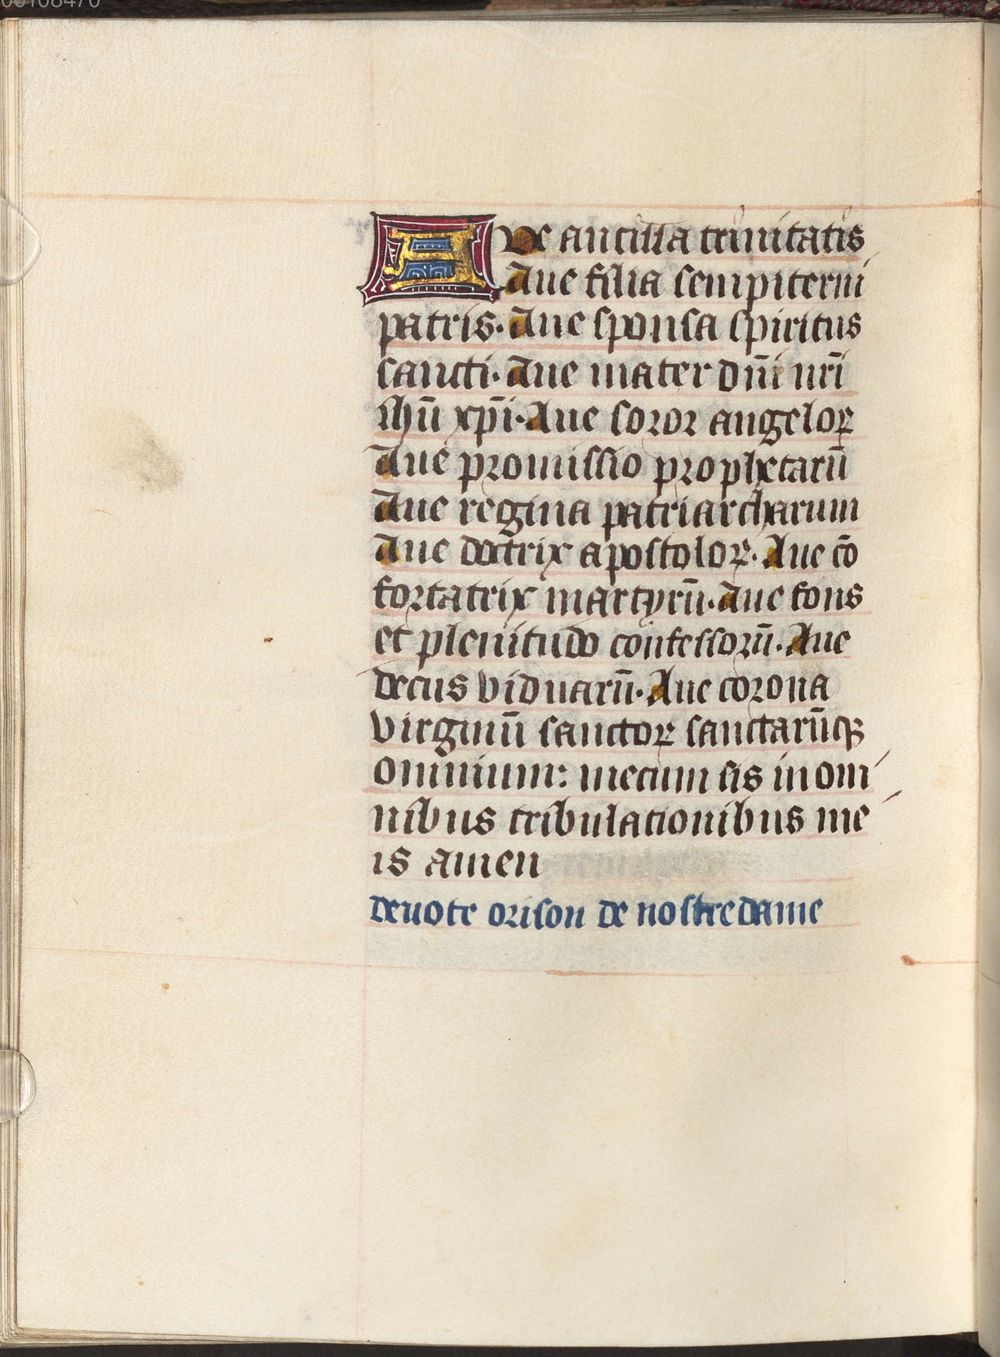 Aue ancilla trinitatis
Aue filia sempiterni
patris. Aue sponsa spiritus
sancti. Aue mater dn̄i nr̄i
ihū xp̄i. Aue soror angeloꝝ
Aue promissio prophetarū
Aue regina patriarcharum
Aue doctrix apostoloꝝ. Aue cō
fortatrix martyrū. Aue fons
et plenitudo confessorū. Aue
decus viduarū. Aue corona
virginū sanctoꝝ sanctarūqꝫ
omnium: mecum sis in om
nibus tribulationibus me
is amen
deuote orison de nostre dame